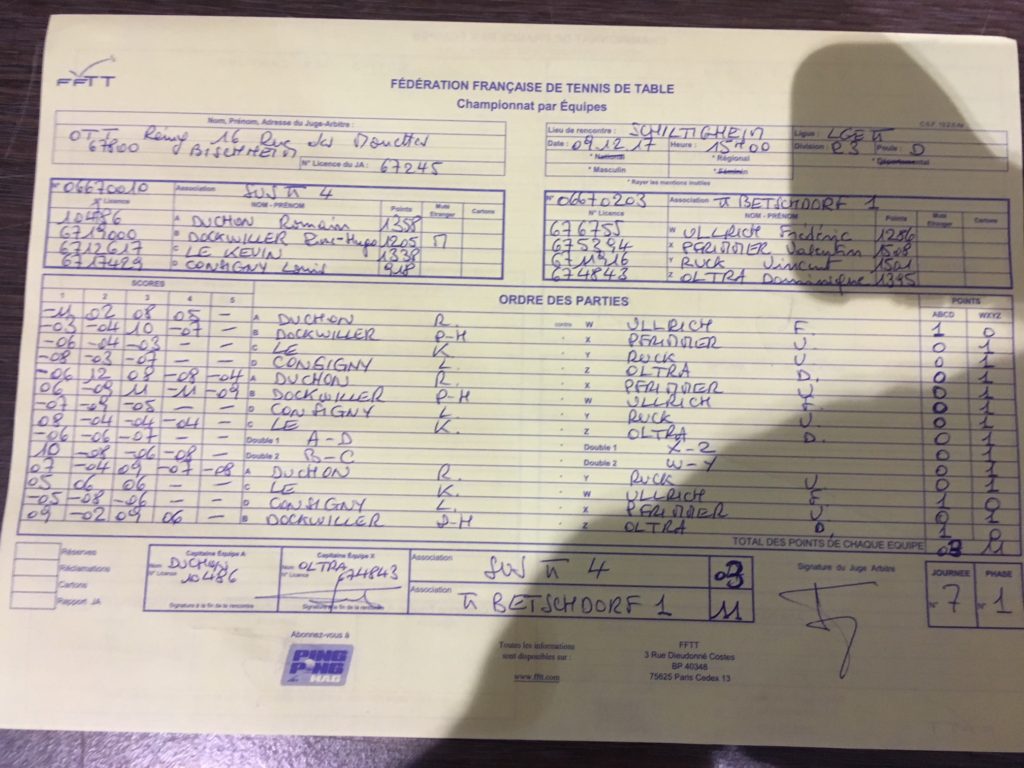 FFTT
FÉDÉRATION FRANÇAISE DE TENNIS DE TABLE
Championnat par Équipes
Nom, Prénom, Adresse du Juge-Arbitre :
OTT Remy 16 Rue des Mouettes
67800 BISCHHEIM
N° Licence du JA : 67245
Lieu de rencontre : SCHILTIGHEIM
Ligue : LGETT
Date : 09.12.17 Heure : 15H00 Division R3 Poule : D
* National * Régional * Départemental
* Masculin * Féminin
* Rayer les mentions inutiles
N° 06670010 Association SUS TT 4
N° Licence NOM - PRÉNOM Points Muté Etranger Cartons
10486 A DUCHON Romain 1358
6719000 B DOCKWILLER Pierre-Hugo 1205 M
6712617 C LE KEVIN 1338
6717429 D CONSIGNY Louis 918
N° 06670203 Association TT BETSCHDORF 1
N° Licence NOM - PRÉNOM Points Muté Etranger Cartons
676755 W ULLRICH Frédéric 1256
675394 X Valentin 1508
6711916 Y RUCK Vincent 1501
674843 Z OLTRA Dominique 1395
SCORES ORDRE DES PARTIES POINTS
1 2 3 4 5 ABCD WXYZ
-11 02 08 05 - A DUCHON R. contre W ULLRICH F. 1 0
-03 -04 10 -07 - B DOCKWILLER P-H X 0 1
-06 -04 -03 - - C LE K. Y RUCK V. 0 1
-08 -03 -07 - - D CONSIGNY L. Z OLTRA D. 0 1
-06 12 08 -08 -04 A DUCHON R. X 0 1
06 -09 11 -11 -09 B DOCKWILLER P-H W ULLRICH F. 0 1
-07 -09 -05 - - D CONSIGNY L. Y RUCK V. 0 1
08 -04 -04 -04 - C LE K. Z OLTRA D. 0 1
-06 -06 -07 - - Double 1 A-D Double 1 X-Z 0 1
10 -08 -06 -08 - Double 2 B-C Double 2 W-Y 0 1
07 -04 09 -07 -08 A DUCHON R. Y RUCK V. 0 1
05 06 06 - - C LE K. W ULLRICH F. 1 0
-05 -08 -06 - - D CONSIGNY L. X 0 1
09 -02 09 06 - B DOCKWILLER P-H Z OLTRA D. 1 0
TOTAL DES POINTS DE CHAQUE EQUIPE 03 11
Réserves
Réclamations
Cartons
Rapport JA
Capitaine Equipe A
Nom DUCHON
N° Licence 10486
Signature à la fin de la rencontre
Capitaine Equipe X
Nom OLTRA
N° Licence 674843
Signature à la fin de la rencontre
Association SUS TT 4 03
Association TT BETSCHDORF 1 11
Signature du Juge Arbitre
JOURNEE PHASE
N° 7 N° 1
Abonnez-vous à
PING PONG MAG
Toutes les informations
sont disponibles sur :
www.fftt.com
FFTT
3 Rue Dieudonné Costes
BP 40348
75625 Paris Cedex 13